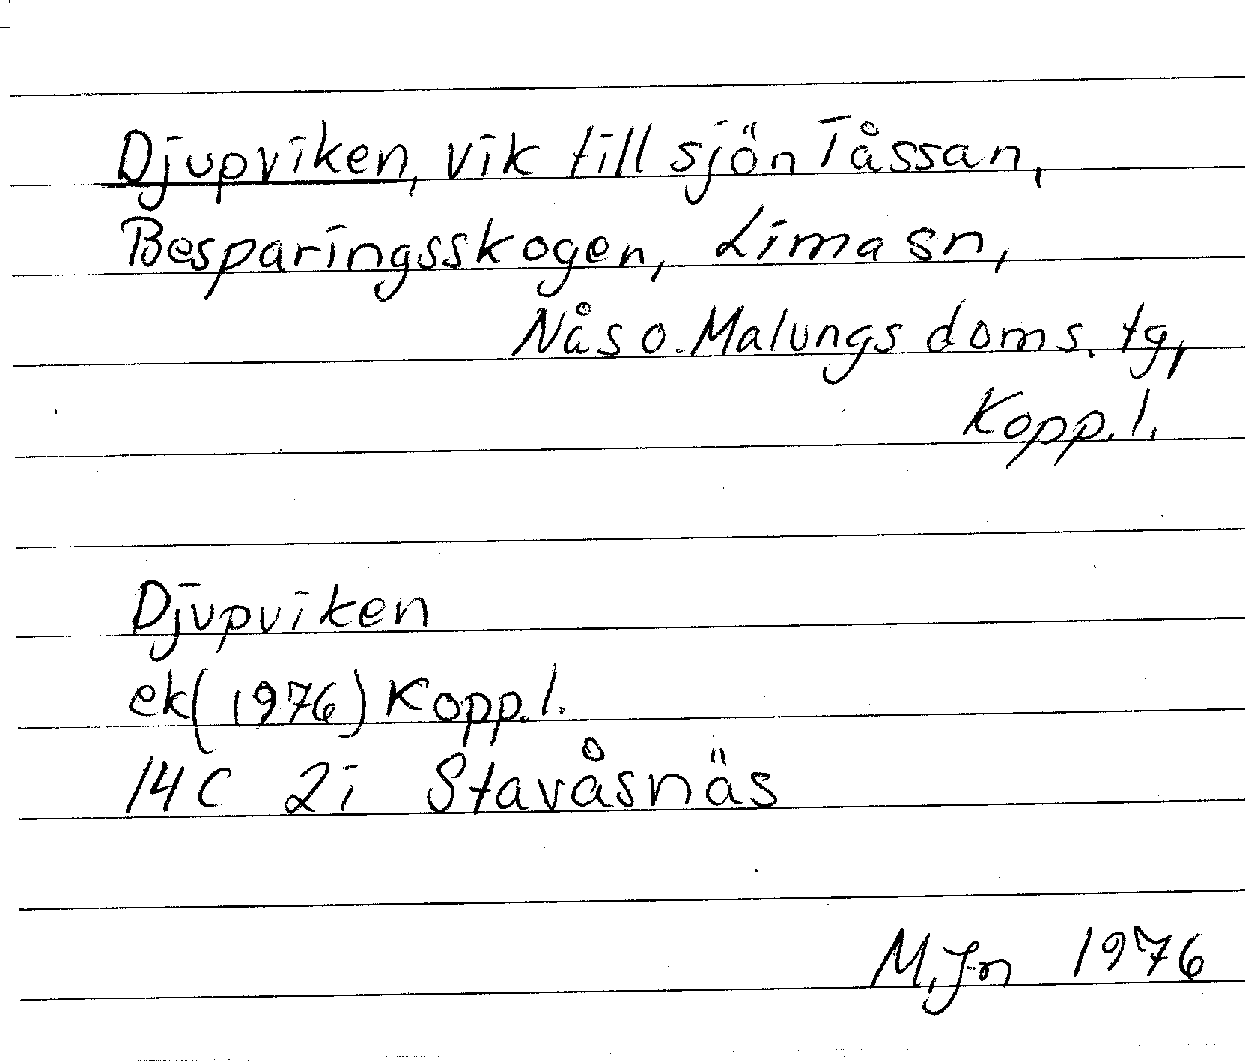 Djupviken, vik till sjön Tåssan,
Besparingsskogen, Lima sn,
Nås o. Malungs doms. tg,
Kopp. l.
Djupviken
ek (1976) Kopp. l.
14C 2i Stavåsnäs
M. Jn 1976